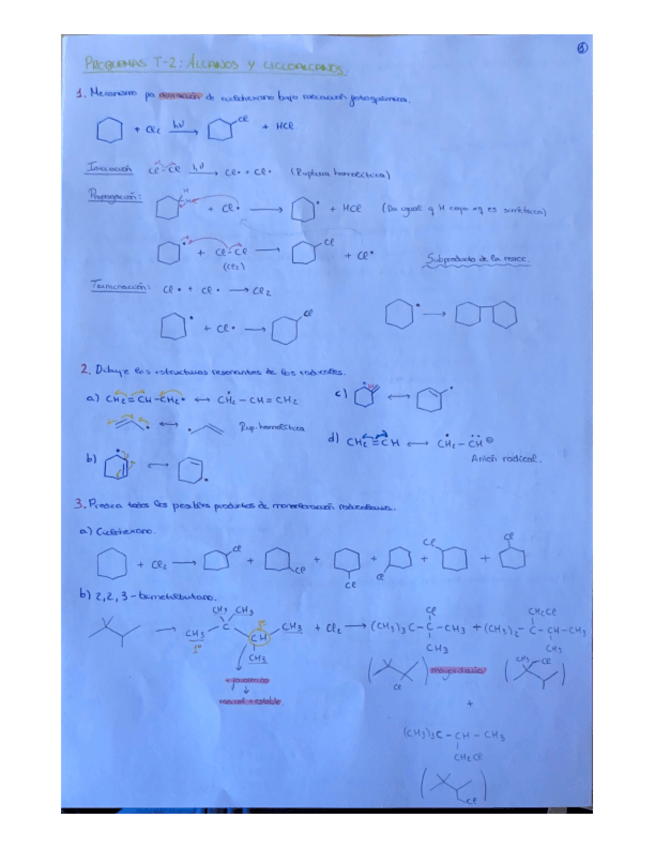 PROBLEMAS T-2: ALCANOS Y CICLOALCANOS.
1. Mecanismo de de ciclohexano bajo fotoquímica.
+ Cl₂ hν → Cl + HCl
Iniciación Cl-Cl hν → Cl• + Cl• (Ruptura homolítica)
Propagación: H H + Cl• → • + HCl (Da igual q H coja xq es simétrico)
• + Cl-Cl → Cl + Cl•
(Cl₂)
Subproducto de la reacc.
Terminación: Cl• + Cl• → Cl₂
• + Cl• → Cl
• →
2. Dibuje las estructuras resonantes de los radicales.
a) CH₂=CH-CH₂• ↔ ĊH₂-CH=CH₂
c) ↔
Rup. homolítica
d) CH₂=CH ↔ ĊH₂-C̈H⊖
Anión radical.
b) ↔
3. Prediga todos los posibles productos de monocloración
a) Ciclohexano.
+ Cl₂ → Cl + Cl + Cl + Cl + Cl + Cl
b) 2,2,3-trimetilbutano.
→ CH₃ CH₃ CH₃ C CH CH₃ CH₃ + Cl₂ → (CH₃)₃C-C-CH₃ + (CH₃)₂-C-CH-CH₃
Cl CH₃ CH₂Cl CH₃
1º 3º
+ favorecido
+ estable
Cl mayoritario CH₃ Cl
+
(CH₃)₃C-CH-CH₃
CH₂Cl
Cl